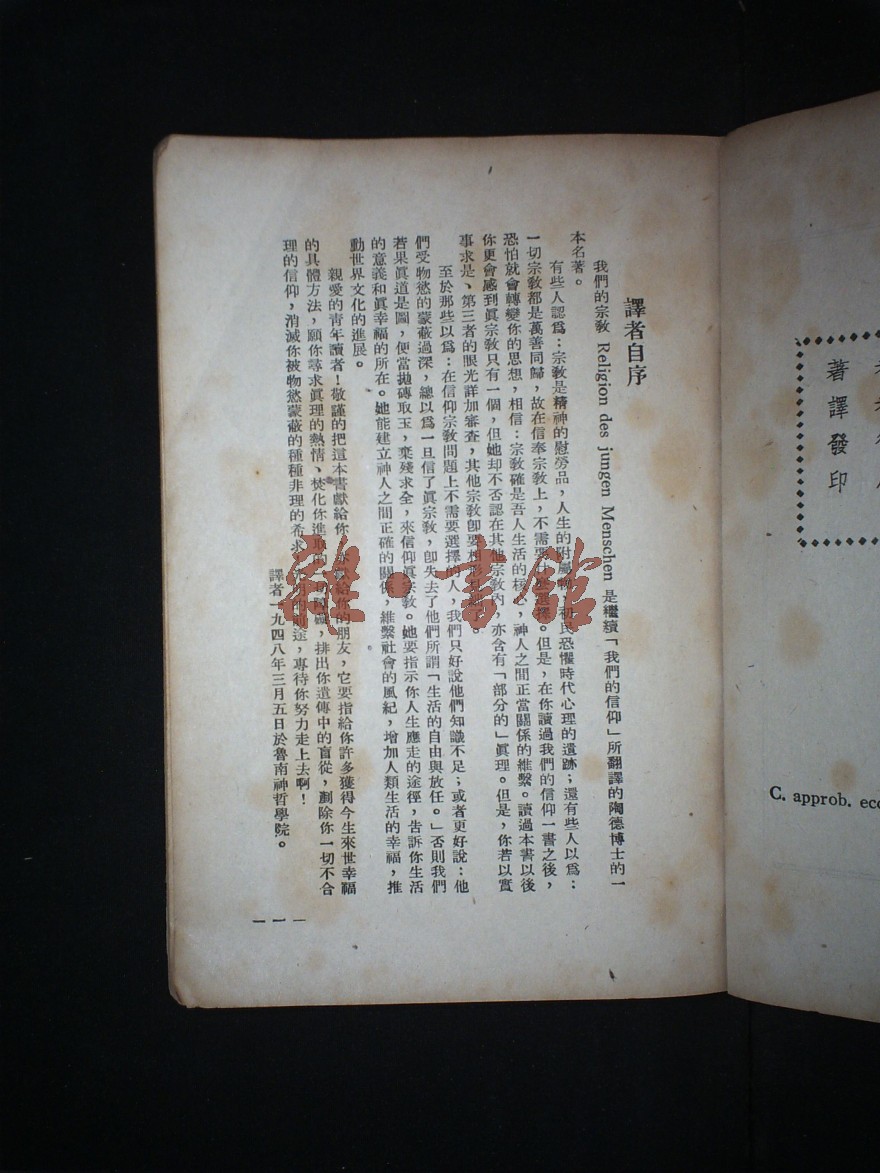 譯者自序
我們的宗教 Religion des jungen Menschen 是繼續「我們的信仰」所翻譯的陶德博士的一
本名著。
有些人認爲：宗教是精神的慰勞品，人生的附屬物，初民恐懼時代心理的遺跡；還有些人以爲：
一切宗教都是萬善同歸，故在信奉宗教上，不需要什麽選擇。但是，在你讀過我們的信仰一書之後，
恐怕就會轉變你的思想，相信：宗教確是吾人生活的核心，神人之間正當關係的維繫。讀過本書以後
你更會感到眞宗教只有一個，但她却不否認在其他宗教內，亦含有「部分的」眞理。但是，你若以實
事求是、第三者的眼光詳加審查，其他宗教卽要相形
至於那些以爲：在信仰宗教問題上不需要選擇的人，我們只好說他們知識不足；或者更好說：他
們受物慾的蒙蔽過深，總以爲一旦信了眞宗教，卽失去了他們所謂「生活的自由與放任。」否則我們
若果眞道是圖，便當拋磚取玉，棄殘求全，來信仰眞宗教。她要指示你人生應走的途徑，告訴你生活
的意義和眞幸福的所在。她能建立神人之間正確的關係，維繫社會的風紀，增加人類生活的幸福，推
動世界文化的進展。
親愛的靑年讀者！敬謹的把這本書獻給你，亦獻給你的朋友，它要指給你許多獲得今生來世幸福
的具體方法，願你尋求眞理的熱情、焚化你進取的一切障礙，排出你遺傳中的盲從，剷除你一切不合
理的信仰，消滅你被物慾蒙蔽的種種非理的希求，光明的前途，專待你努力走上去啊！
譯者一九四八年三月五日於魯南神哲學院。
一 1 一
著譯發印
C. approb. ecc
雜·書館